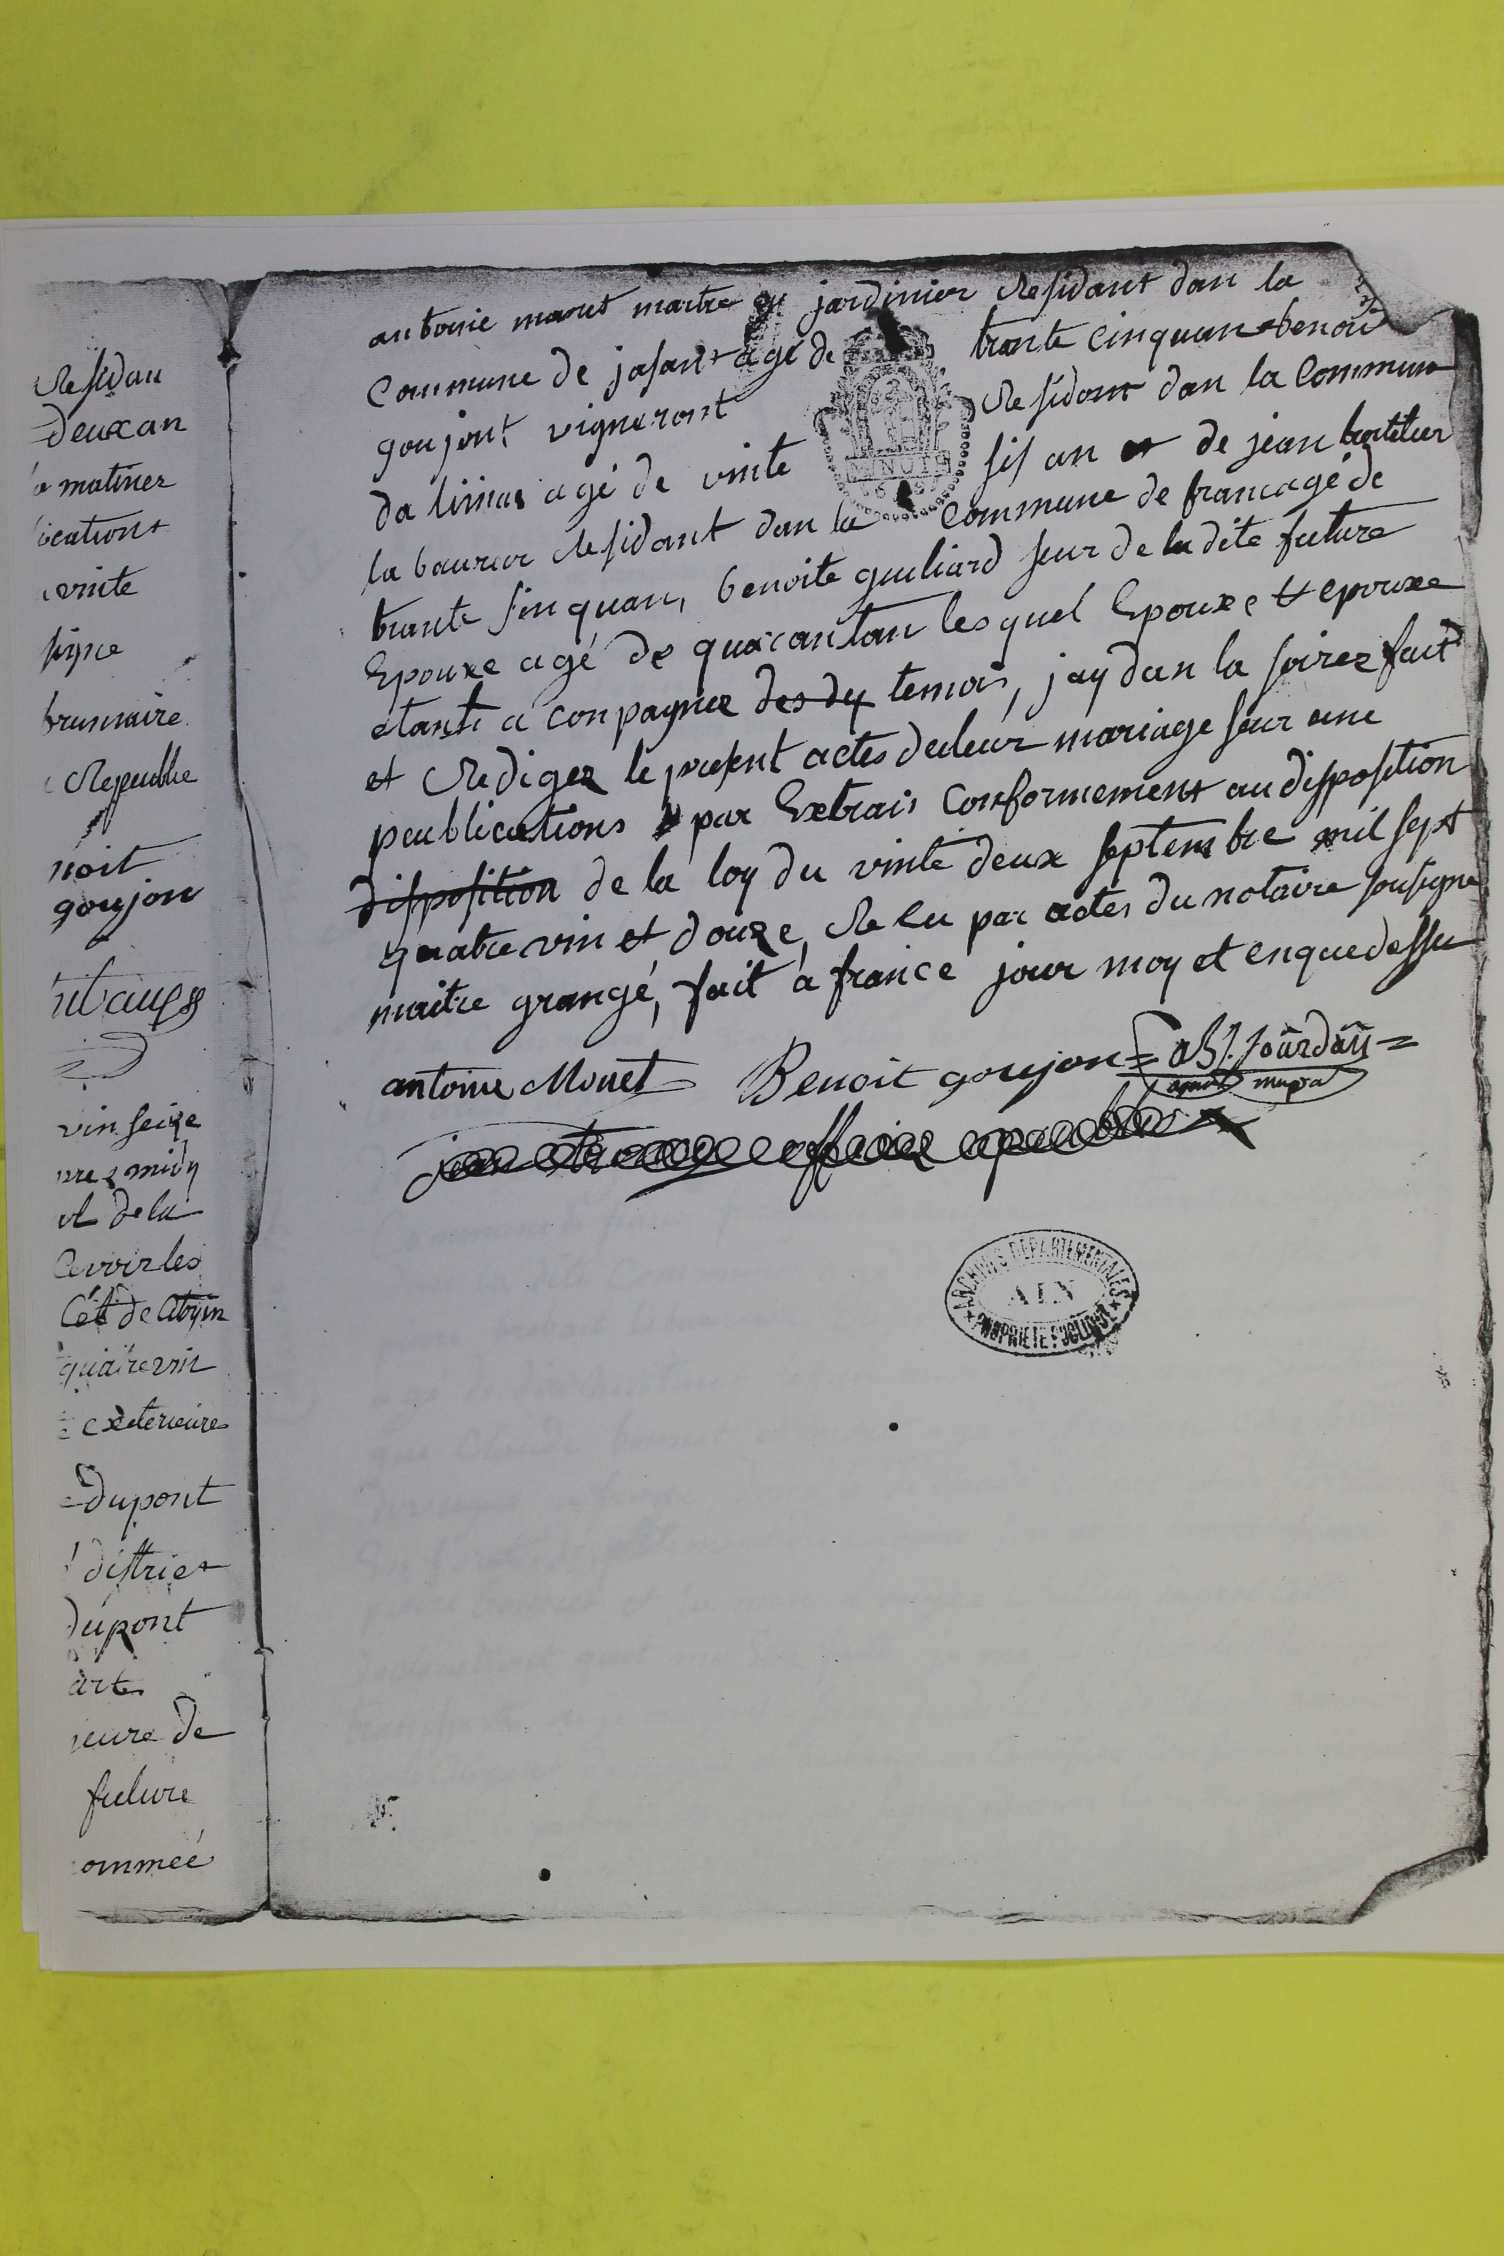 Residan
deuxan
matiner
ications
vinte
signe
brumaire
Republie
noit
goujon
vin seize
midy
de la
avoir les
Cét de Citoyin
quatrevin
exterieures
dupont
district
dupont
arte
eure de
future
ommeé
antoine monet maitre jardinier Residant dan la
Commune de jasant agé de trante cinquan benoit
goujont vigneront Residant dan la Commune
da limas agé de vinte sis an et de jean
la boureur Residant dan la Commune de francagé de
trante sinquan, benoite guiliard seur de la dite future
Epouxe agé de quarantan lesquel Epouxe et epouxe
etante a conpagnee des dy temois, jay dan la soirez fait
et Rediger le present actes deleur mariage seur une
publications par Extrais Conformement au disposition
disposition de la loy du vinte deux septembre mil sept
quatre vin et douze, Re lu par actes du notaire sousigne
maitre grangé, fait a france jour moy et enquedessu
antoine Monet Benoit goujon = Jourdan =
jean officier publi
MINUTE
ARCHIVES DEPARTEMENTALES
AIN
PROPRIETE PUBLIQUE